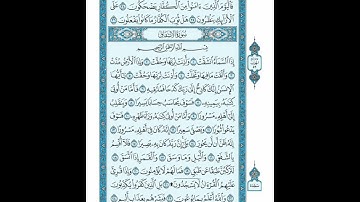 فَٱلْيَوْمَ ٱلَّذِينَ ءَامَنُوا۟ مِنَ ٱلْكُفَّارِ يَضْحَكُونَ ۝ عَلَى
ٱلْأَرَآئِكِ يَنظُرُونَ ۝ هَلْ ثُوِّبَ ٱلْكُفَّارُ مَا كَانُوا۟ يَفْعَلُونَ ۝
سُورَةُ الانْشِقَاقِ
بِسْمِ ٱللَّهِ ٱلرَّحْمَٰنِ ٱلرَّحِيمِ
إِذَا ٱلسَّمَآءُ ٱنشَقَّتْ ۝ وَأَذِنَتْ لِرَبِّهَا وَحُقَّتْ ۝ وَإِذَا ٱلْأَرْضُ مُدَّتْ ۝
وَأَلْقَتْ مَا فِيهَا وَتَخَلَّتْ ۝ وَأَذِنَتْ لِرَبِّهَا وَحُقَّتْ ۝ يَٰٓأَيُّهَا
ٱلْإِنسَٰنُ إِنَّكَ كَادِحٌ إِلَىٰ رَبِّكَ كَدْحًا فَمُلَٰقِيهِ ۝ فَأَمَّا مَنْ أُوتِىَ
كِتَٰبَهُۥ بِيَمِينِهِۦ ۝ فَسَوْفَ يُحَاسَبُ حِسَابًا يَسِيرًا ۝ وَيَنقَلِبُ
إِلَىٰٓ أَهْلِهِۦ مَسْرُورًا ۝ وَأَمَّا مَنْ أُوتِىَ كِتَٰبَهُۥ وَرَآءَ ظَهْرِهِۦ ۝ فَسَوْفَ
يَدْعُوا۟ ثُبُورًا ۝ وَيَصْلَىٰ سَعِيرًا ۝ إِنَّهُۥ كَانَ فِىٓ أَهْلِهِۦ مَسْرُورًا ۝
إِنَّهُۥ ظَنَّ أَن لَّن يَحُورَ ۝ بَلَىٰٓ إِنَّ رَبَّهُۥ كَانَ بِهِۦ بَصِيرًا ۝ فَلَآ أُقْسِمُ
بِٱلشَّفَقِ ۝ وَٱلَّيْلِ وَمَا وَسَقَ ۝ وَٱلْقَمَرِ إِذَا ٱتَّسَقَ ۝
لَتَرْكَبُنَّ طَبَقًا عَن طَبَقٍ ۝ فَمَا لَهُمْ لَا يُؤْمِنُونَ ۝ وَإِذَا قُرِئَ
عَلَيْهِمُ ٱلْقُرْءَانُ لَا يَسْجُدُونَ ۩ ۝ بَلِ ٱلَّذِينَ كَفَرُوا۟ يُكَذِّبُونَ
۝ وَٱللَّهُ أَعْلَمُ بِمَا يُوعُونَ ۝ فَبَشِّرْهُم بِعَذَابٍ أَلِيمٍ ۝